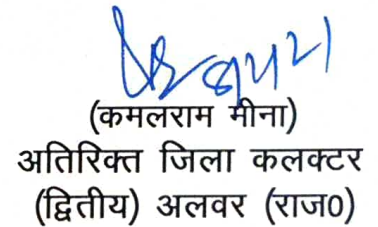 (कमलराम मीना)
अतिरिक्त जिला कलक्टर
(द्वितीय) अलवर (राज0)